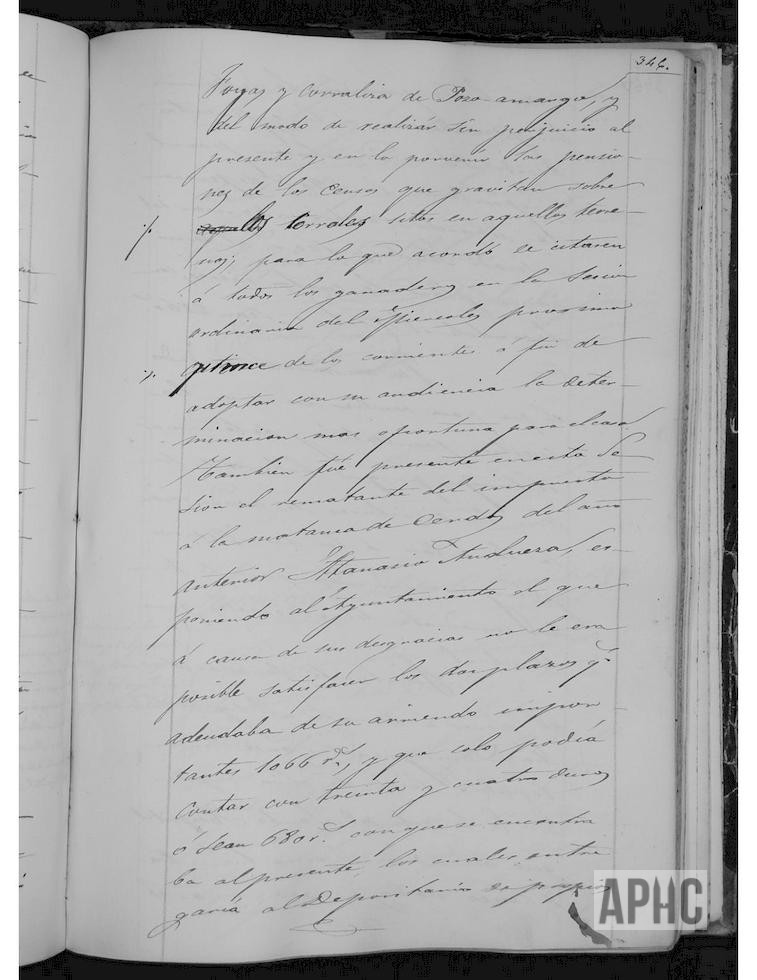 344.
Foyas y corraliza de Pozo-amargo, y
del modo de realizár sin perjuicio al
presente y en lo porvenir las pensio-
nes de los Censos que gravitan sobre
los corrales sitos en aquellos terre-
nos; para lo que acordó se citasen
á todos los ganaderos en la Sesion
ordinaria del Miercoles proximo
quince de los corrientes á fin de
adoptar con su audiencia la deter-
minacion mas oportuna para el caso
Tambien fué presente en esta Se
sion el rematante del impuesto
á la matanza de Cerdos del año
anterior Atanasio es-
poniendo al Ayuntamiento el que
á causa de sus desgracias no le era
posible satisfacer los dos plazos q.e
adeudaba de su arriendo impor-
tantes 1066 r.s, y que solo podia
contar con treinta y cuatro duros
ó sean 680 r.s con que se encontra
ba al presente, los cuales entre
garia al Depositario de propios
APHC